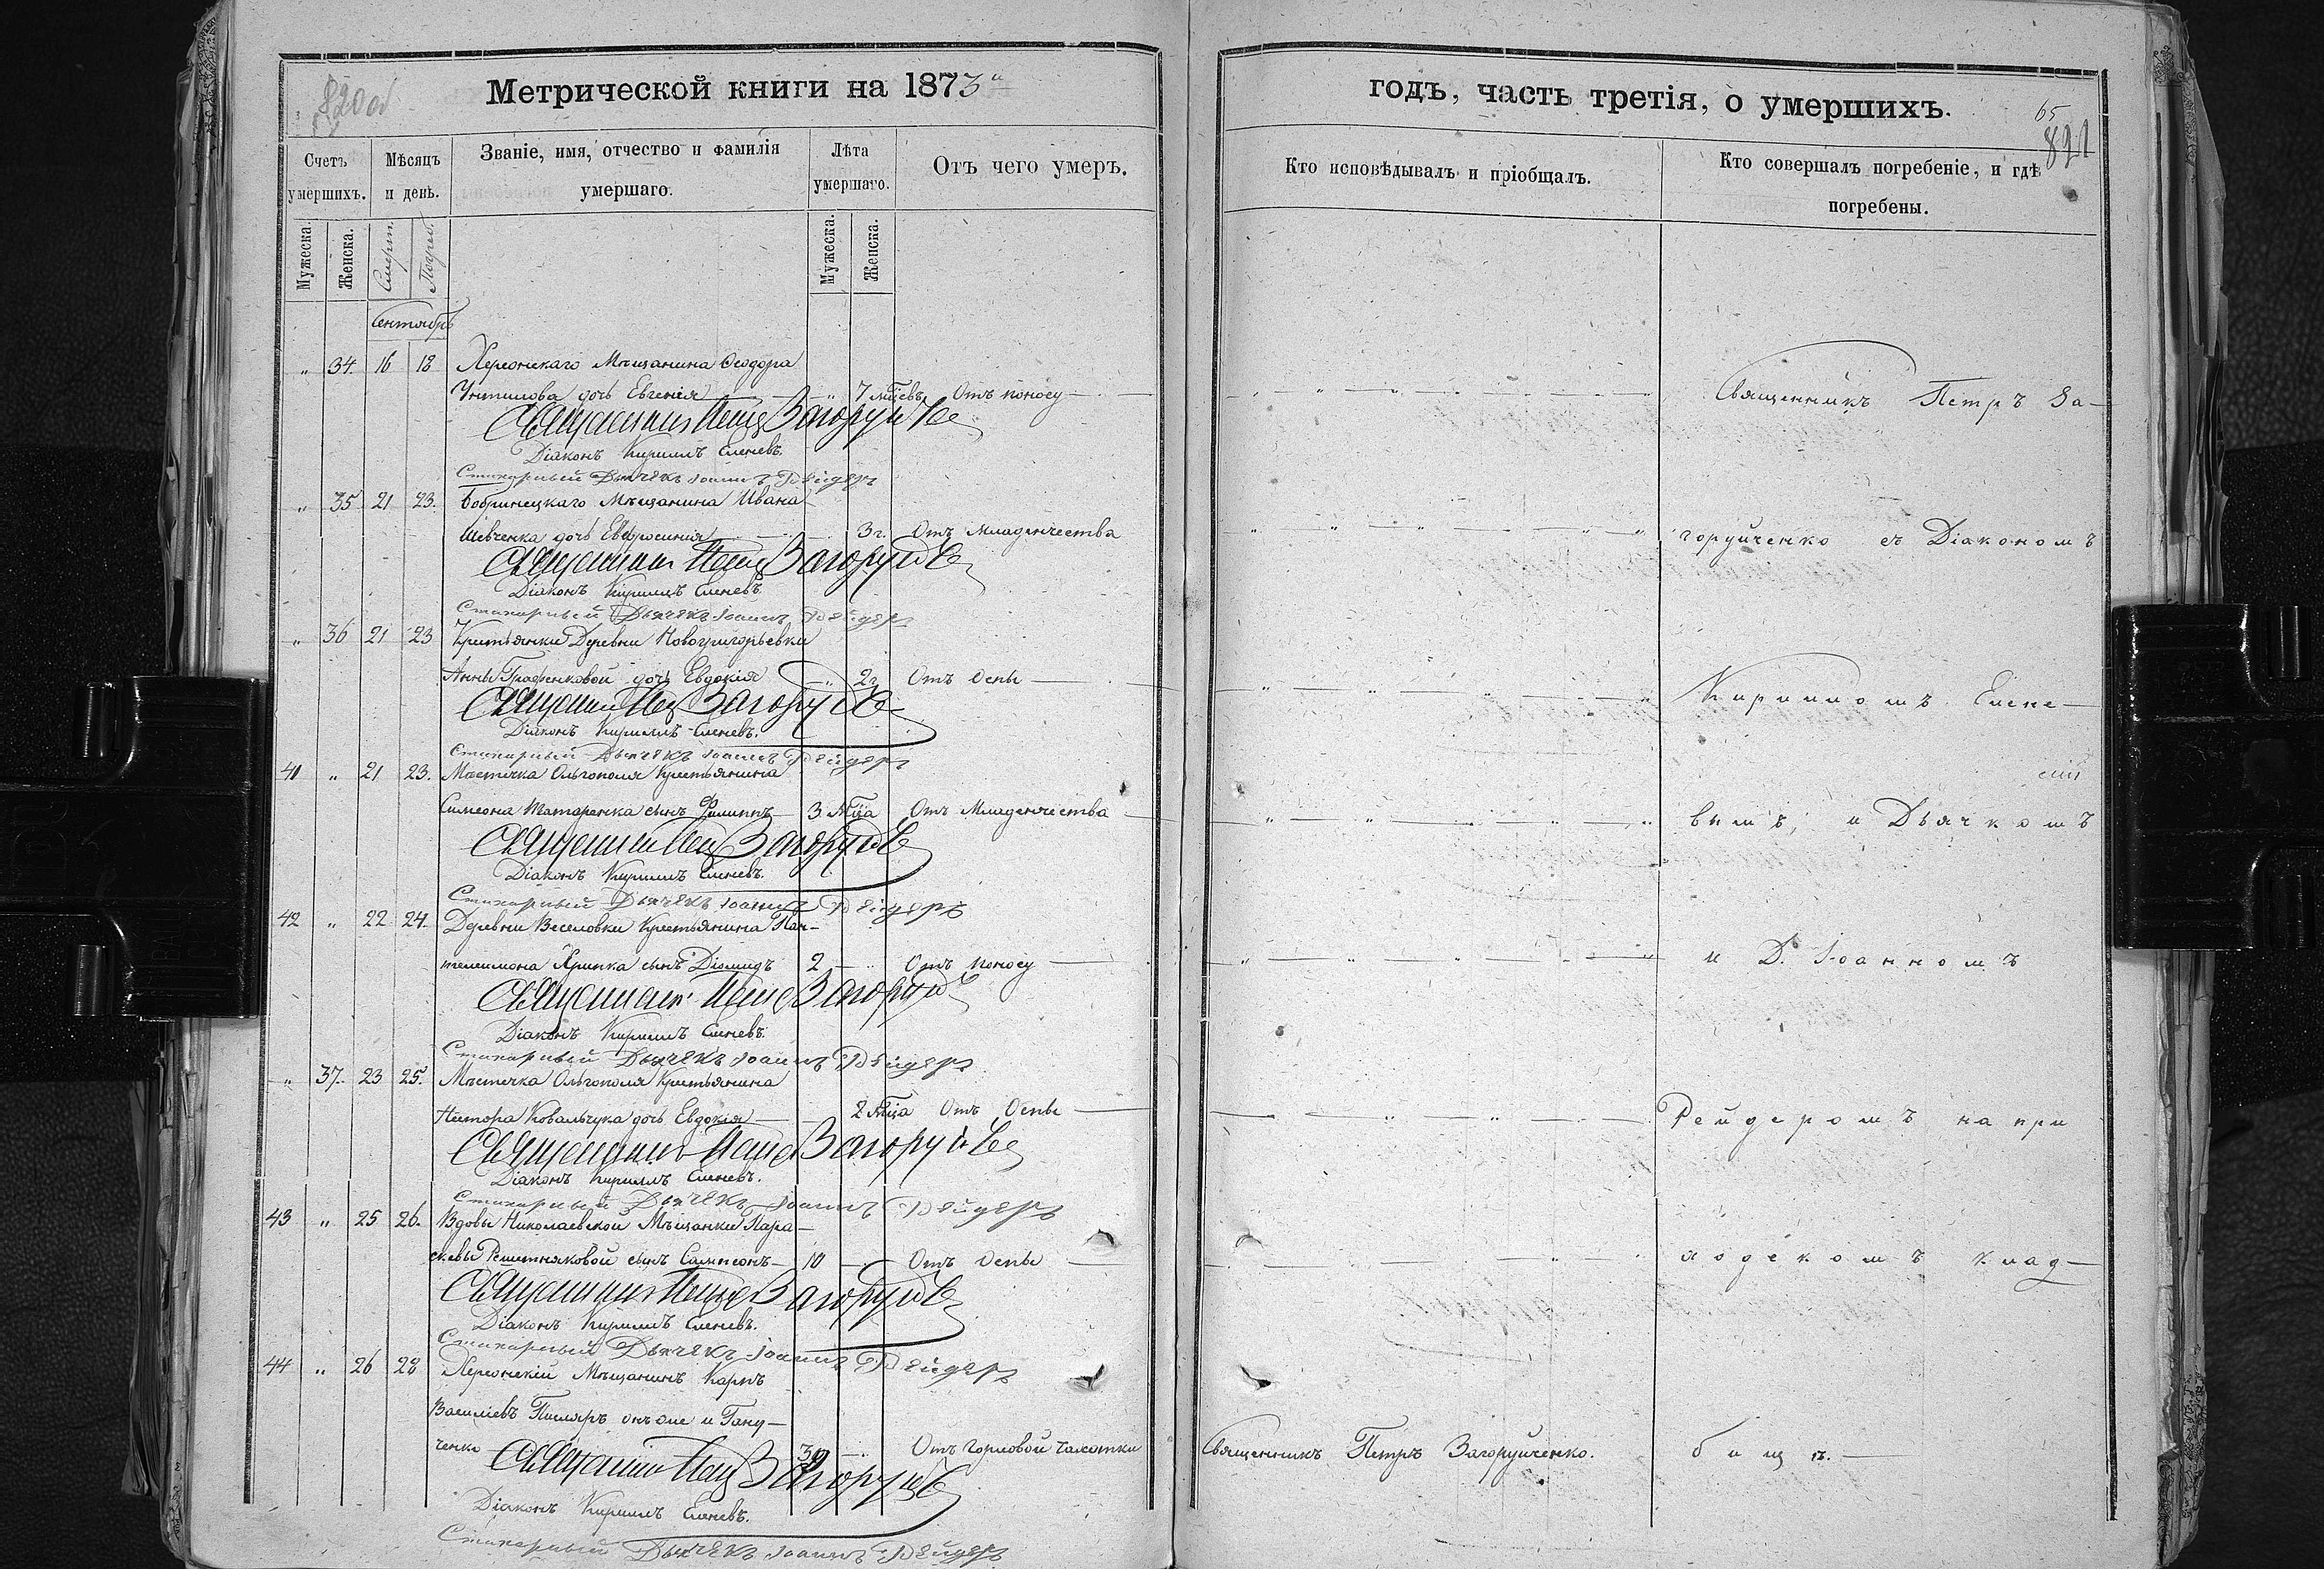 820 об
Метрической книги на 1873й
Счетъ умершихъ.
Мѣсяцъ и день.
Званіе, имя, отчество и фамилія умершаго.
Лѣта умершаго.
Отъ чего умеръ.
Мужеска.
Женска.
Смерт.
Погреб.
Мужеска.
Женска.
Сентябрь
„ 34. 16 18 Херсонскаго Мѣщанина Ѳеодора
дочь Евгенія — „ 7 мѣсевъ Отъ поносу —
Священникъ Петръ Загоруйче
Діаконъ Кириллъ Еленевъ.
Стихарный Дьячекъ Іоаннъ Рейдеръ
„ 35 21 23. Бобринецкаго Мѣщанина Ивана
Шевченка дочь Евфросинія — 3 г. Отъ Младенчества
Священникъ Петръ Загоруйче
Діаконъ Кириллъ Еленевъ.
Стихарный Дьячекъ Іоаннъ Рейдеръ
„ 36 21 23 Крестьянки Деревни Новогригорьевки
Анны Графенковой дочь Евдокія — „ 2 г. Отъ Оспы —
Священникъ Петръ Загоруйче
Діаконъ Кириллъ Еленевъ.
Стихарный Дьячекъ Іоаннъ Рейдеръ
41 „ 21 23. Мѣстечка Ольгополя Крестьянина
Симеона Татаренка сынъ Филиппъ 3 мѣца Отъ Младенчества
Священникъ Петръ Загоруйче
Діаконъ Кириллъ Еленевъ.
Стихарный Дьячекъ Іоаннъ Рейдеръ
42 „ 22 24. Деревни Веселовки Крестьянина Пан-
телеимона Хрипка сынъ Діомидъ 2 — „ Отъ поносу —
Священникъ Петръ Загоруйче
Діаконъ Кириллъ Еленевъ.
Стихарный Дьячекъ Іоаннъ Рейдеръ
„ 37. 23 25. Мѣстечка Ольгополя Крестьянина
Нестора Ковальчука дочь Евдокія — 2 мѣца Отъ Оспы —
Священникъ Петръ Загоруйче
Діаконъ Кириллъ Еленевъ.
Стихарный Дьячекъ Іоаннъ Рейдеръ
43 „ 25 26. Вдовы Николаевской Мѣщанки Пара-
скевы Решетняковой сынъ Сампсонъ — 10 — Отъ Оспы —
Священникъ Петръ Загоруйче
Діаконъ Кириллъ Еленевъ.
Стихарный Дьячекъ Іоаннъ Рейдеръ
44 „ 26 28 Херсонскій Мѣщанинъ Карпъ
Василіевъ Писляръ онъ же и Гану-
ченко — Отъ Горловой чахотки
Священникъ Петръ Загоруйче
Діаконъ Кириллъ Еленевъ.
Стихарный Дьячекъ Іоаннъ Рейдеръ
годъ, часть третія, о умершихъ.
65
821
Кто исповѣдывалъ и пріобщалъ.
Кто совершалъ погребеніе, и гдѣ погребены.
Священникъ Петръ За-
горуйченко съ Діакономъ
Кирилломъ Елене-
вымъ, и Дьячкомъ
и Д. Іоанномъ
Рейдеромъ на при
ходскомъ клад-
Священникъ Петръ Загоруйченко. бищѣ. —